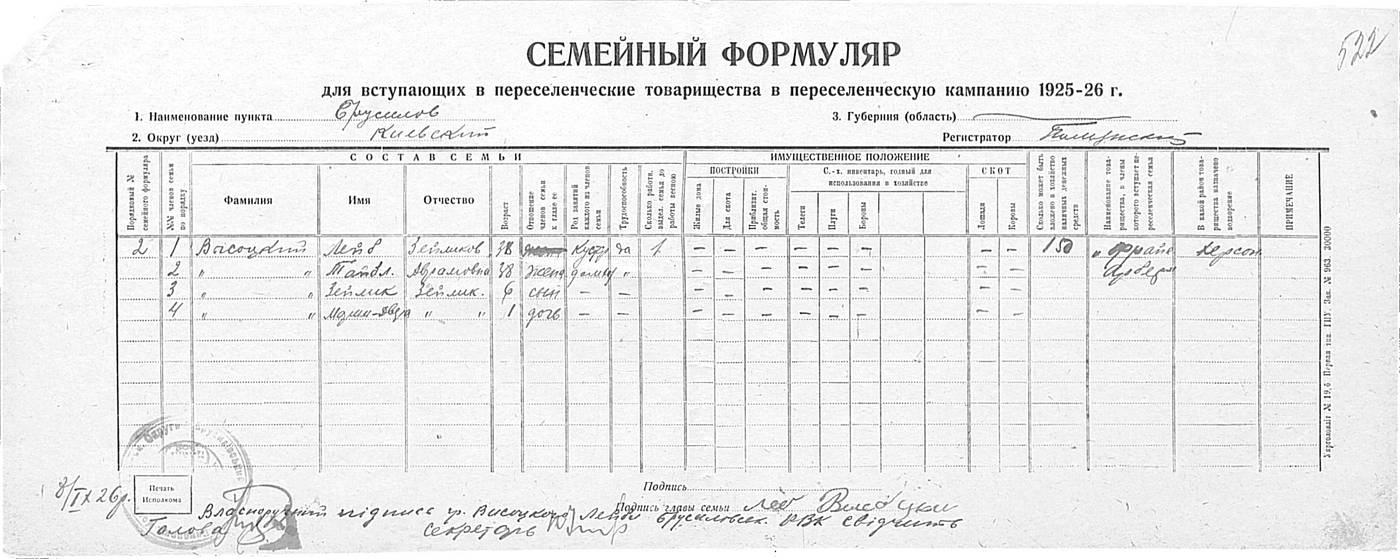 522
СЕМЕЙНЫЙ ФОРМУЛЯР
для вступающих в переселенческие товарищества в переселенческую кампанию 1925-26 г.
1. Наименование пункта Брусилов 3. Губерния (область)
2. Округ (уезд) Киевский Регистратор
Порядковый № семейного формуляра
№№ членов семьи по порядку
СОСТАВ СЕМЬИ
Фамилия
Имя
Отчество
Возраст
Отношение членов семьи к главе ее
Род занятий каждого из членов семьи
Трудоспособность
Сколько работн. выдел. семья до работы весною
ИМУЩЕСТВЕННОЕ ПОЛОЖЕНИЕ
ПОСТРОЙКИ
Жилые дома
Для скота
Приблизит. общая стоимость
С.-х. инвентарь, годный для использования в хозяйстве
Телеги
Плуги
Бороны
СКОТ
Лошади
Коровы
Сколько может быть вложено в хозяйство наличных денежных средств
Наименование товарищества, в члены которого вступает переселенческая семья
В какой район товарищества назначено водворение
ПРИМЕЧАНИЕ
2 1 Высоцкий Лейб Зейликов 38 Кустр да 1 — — — — — — — — 150 „Фрайе Херсон
2 „ „ Тайбл. Абрамовна 38 жена домаш „ — — — — — — — — Арбет“
3 „ „ Зейлик Зейлик. 6 сын — — — — — — — — — —
4 „ „ „ „ 1 дочь — — — — — — — — — —
Печать Исполкома
Подпись
8/IX 26 р. Подпись главы семьи
Власноручний підпис гр. Висоцкого Лейби Брусиловськ. РВК свідчить
Голова Секретарь